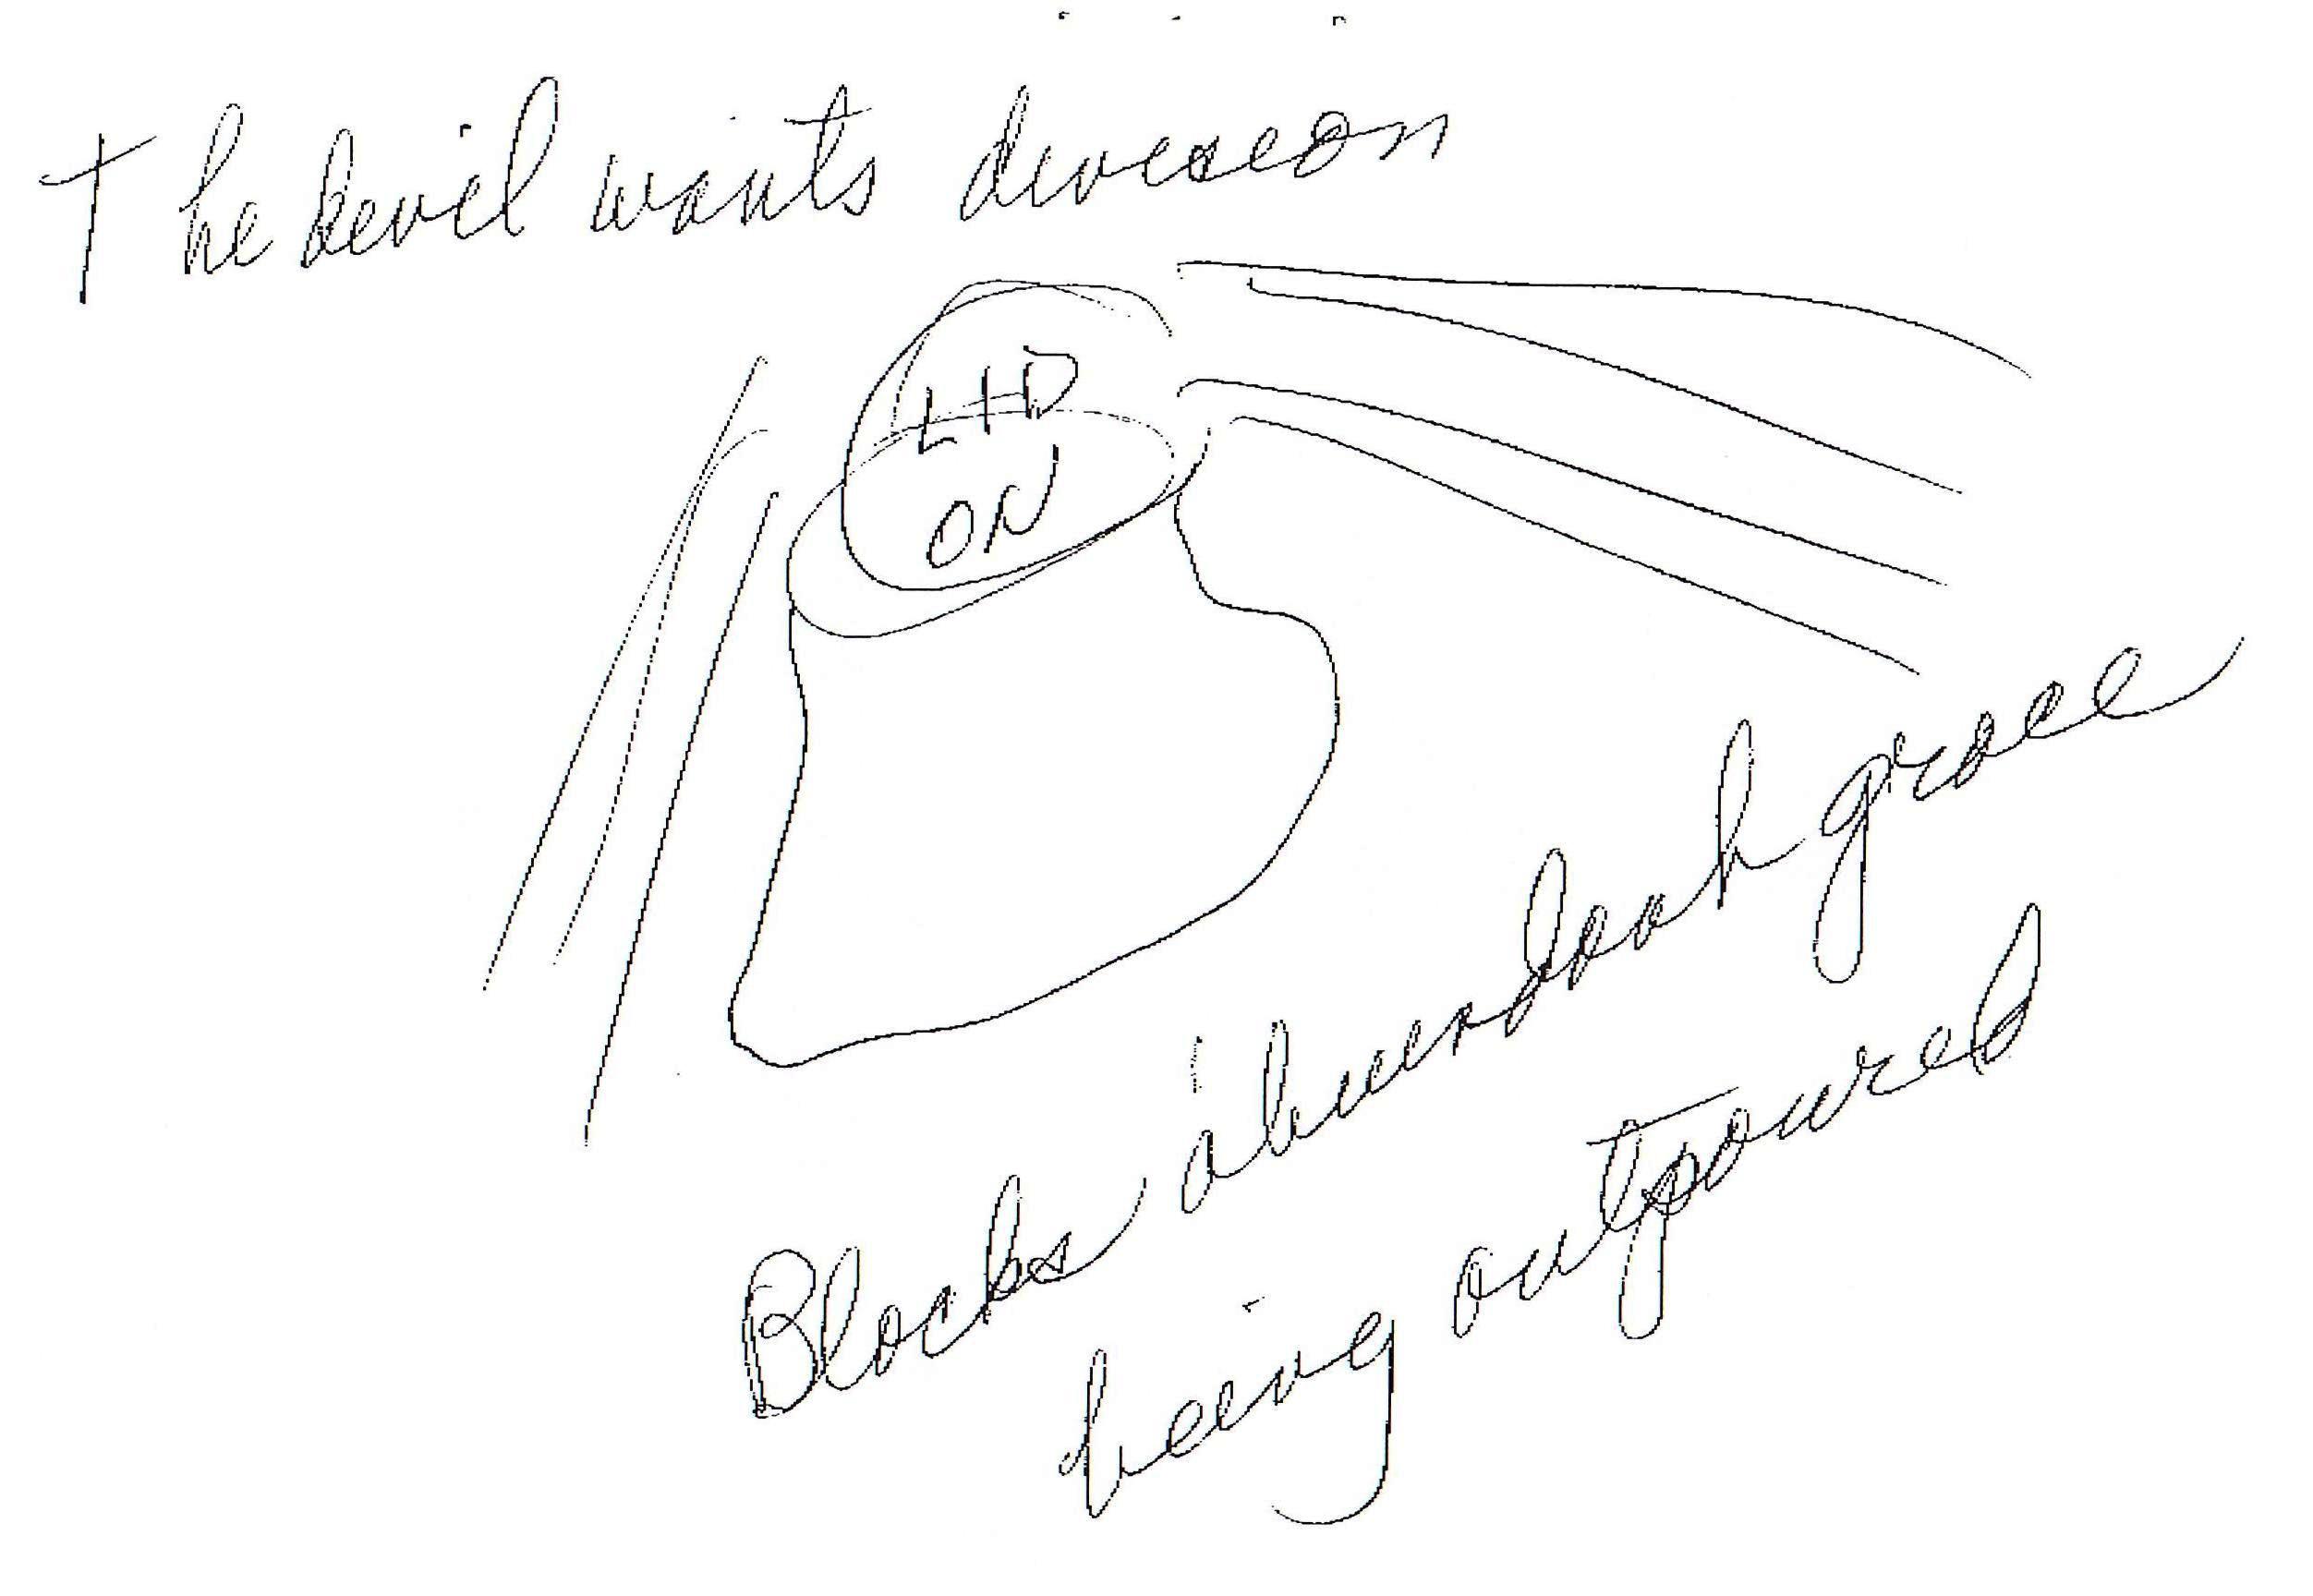 The devil wants division
LID
ON
Blocks abundant grace
being outpoured